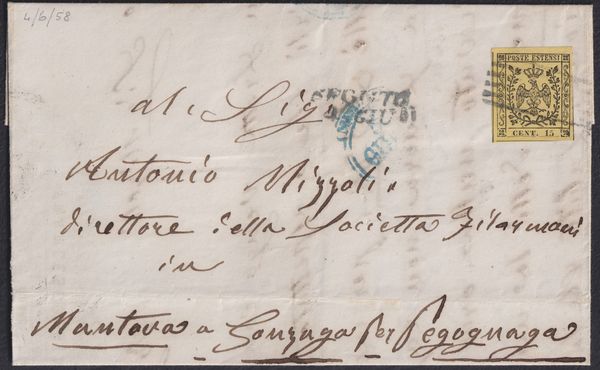 4/6/58
POSTE ESTENSI
CENT. 15
al Sigr
REGGIO
4 GIU
Antonio Mizzoli
direttore della Societta Filarmoni
in
Mantova a Gonzaga per Pegognaga